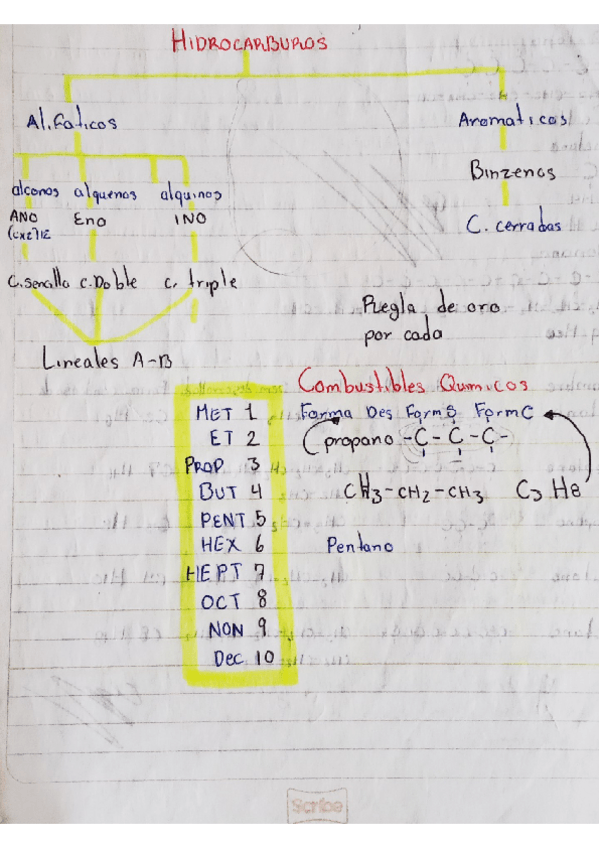 HIDROCARBUROS
Alifaticos
Aromaticos
alcanos alquenos alquinos
Binzenos
ANO Eno INO
C. cerradas
C. Sencilla C. Doble C. triple
Regla de oro
por cada
Lineales A-B
Combustibles Quimicos
MET 1
ET 2
PROP 3
BUT 4
PENT 5
HEX 6
HEPT 7
OCT 8
NON 9
Dec 10
Forma Des FormS FormC
propano -C-C-C-
CH3-CH2-CH3 C3H8
Pentano
Scribe